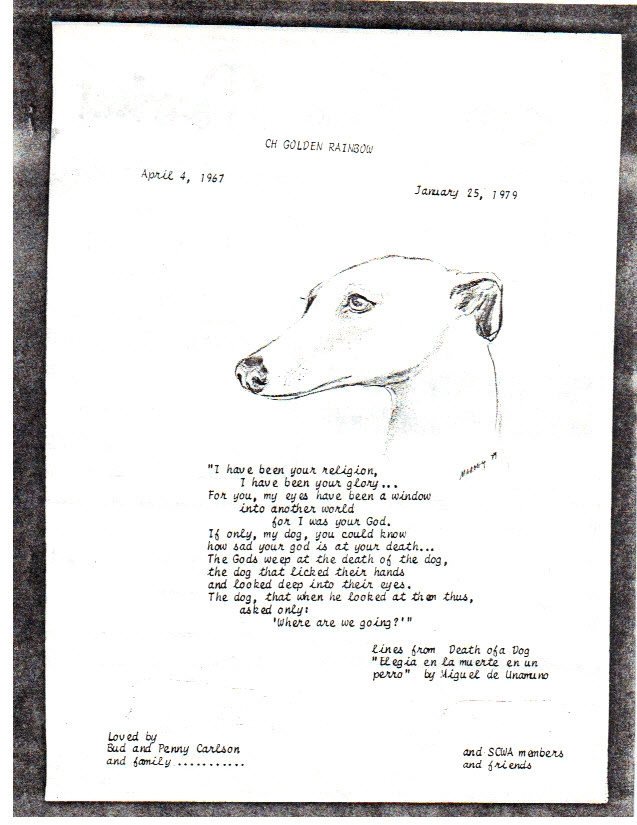 CH GOLDEN RAINBOW
April 4, 1967
January 25, 1979
"I have been your religion,
I have been your glory...
For you, my eyes have been a window
into another world
for I was your God.
If only, my dog, you could know
how sad your god is at your death...
The Gods weep at the death of the dog,
the dog that licked their hands
and looked deep into their eyes.
The dog, that when he looked at them thus,
asked only:
'Where are we going?'"
lines from Death ofa Dog
"Elegia en la muerte en un
perro" by Miguel de Unamuno
Loved by
Bud and Penny Carlson
and family ...........
and SCWA members
and friends